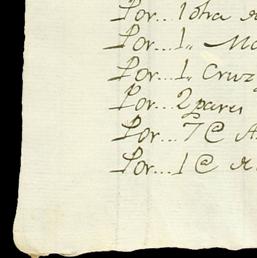 Por... 1 otra
Por... 1,,
Por... 1,, Cruz
Por... 2 pares
Por... 7 @
Por... 1 @